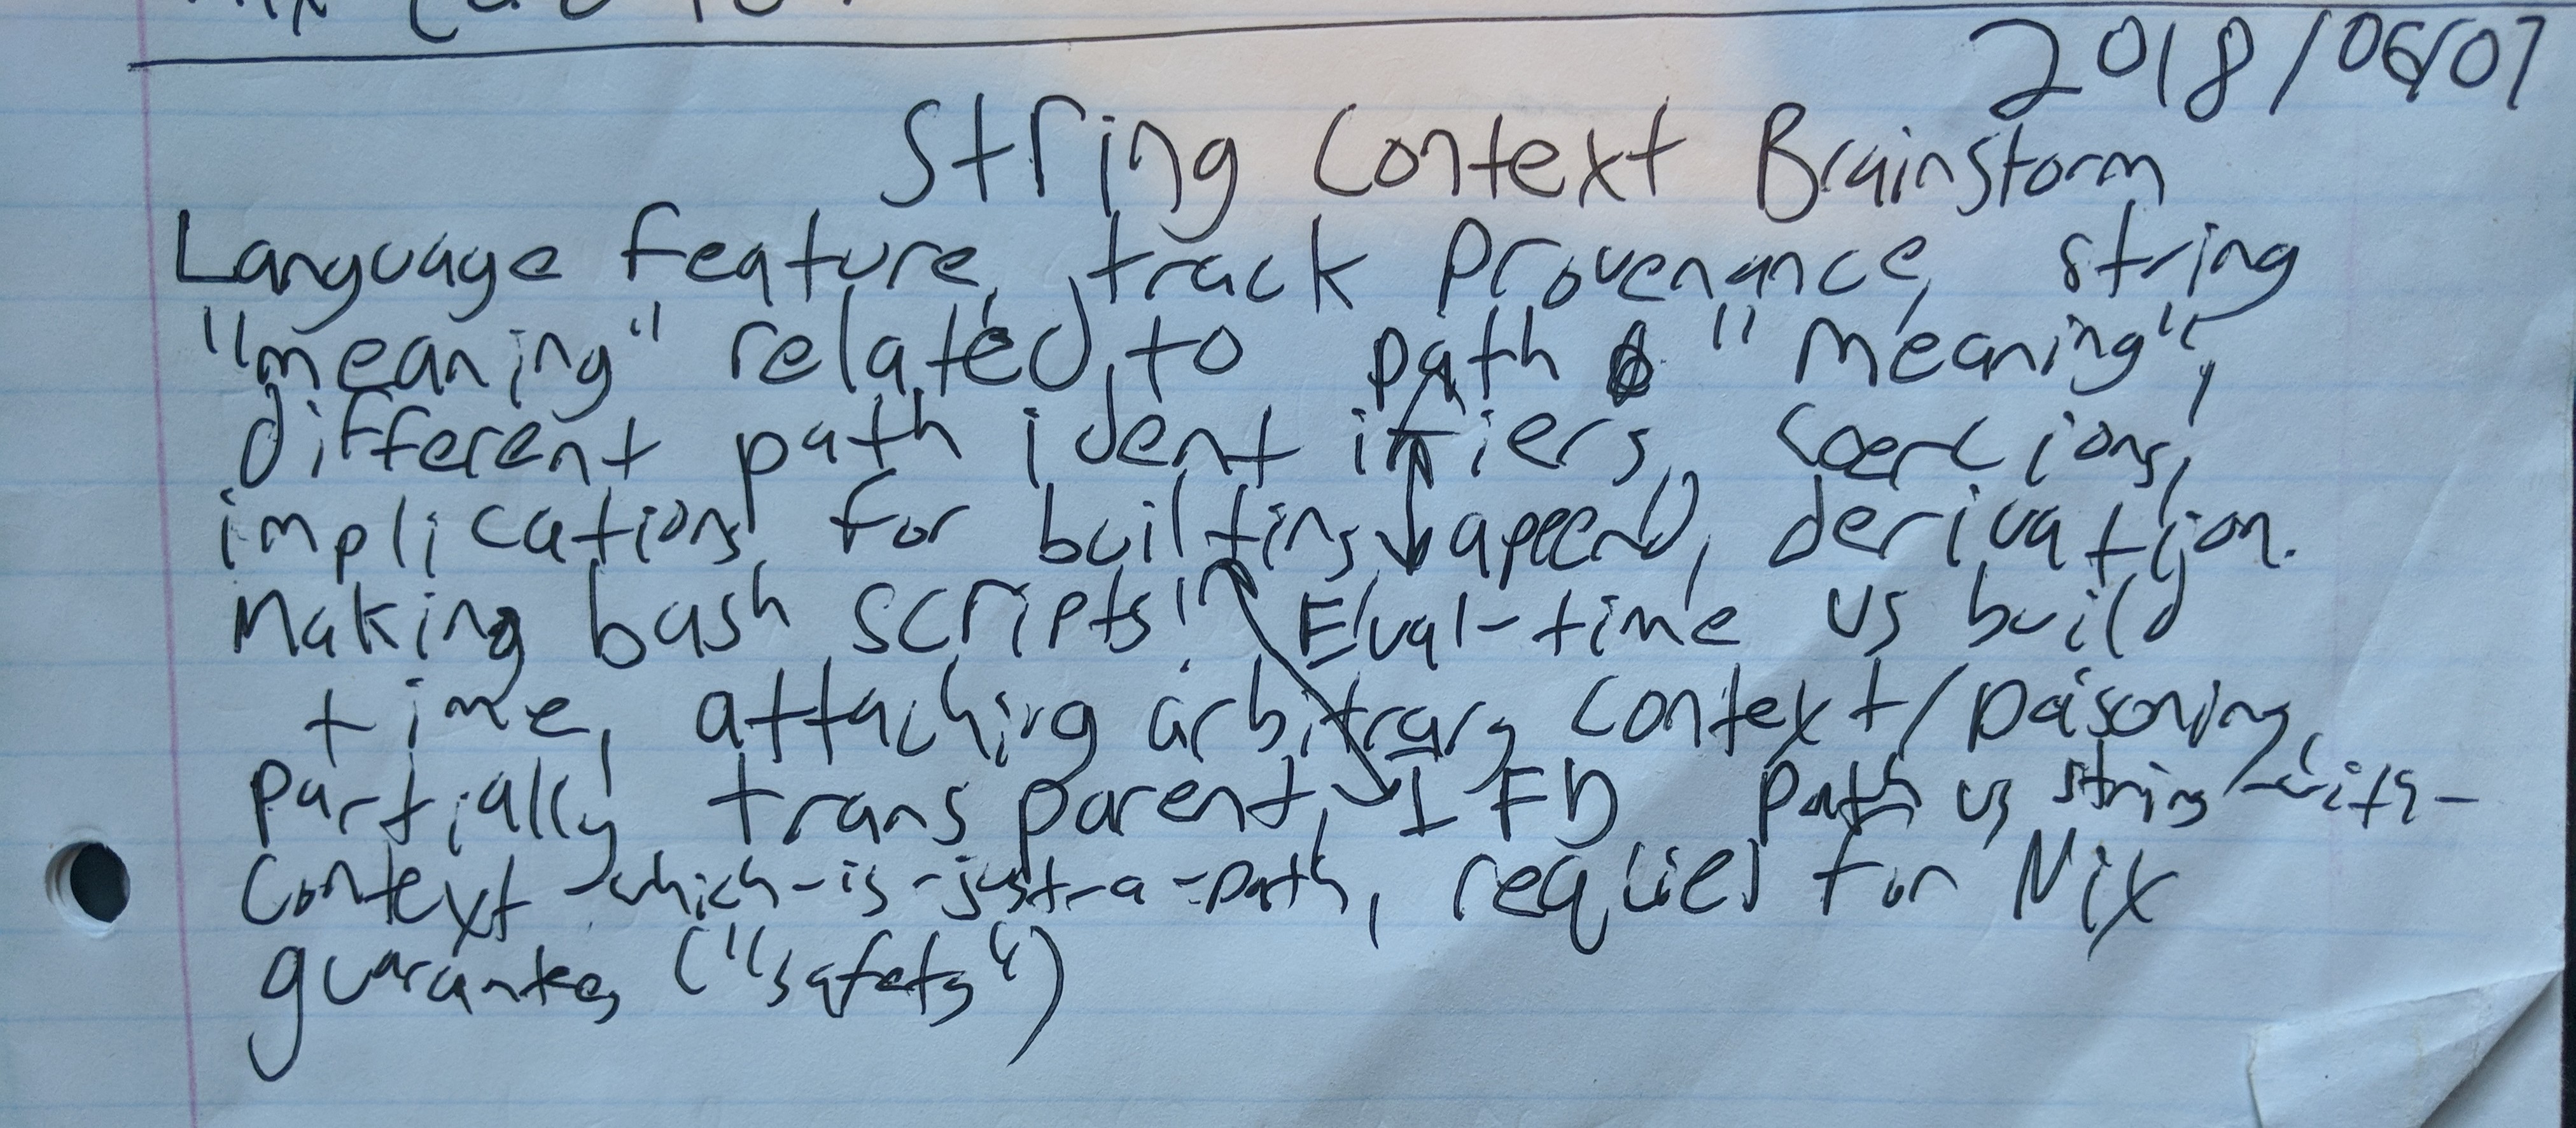 2018/06/07
String Context Brainstorm
Language feature, track provenance, string
"meaning" related to path "meaning",
different path identifiers, coercions,
implications for builtins, append, derivation.
Making bash scripts! Eval-time vs build
time, attaching arbitrary context/poisoning,
partially transparent, IFD path vs string-with-
context-which-is-just-a-path, required for Nix
guarantes ("safety")